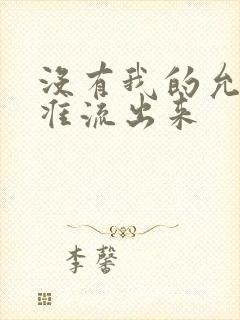 没有我的允
准流出来
李馨